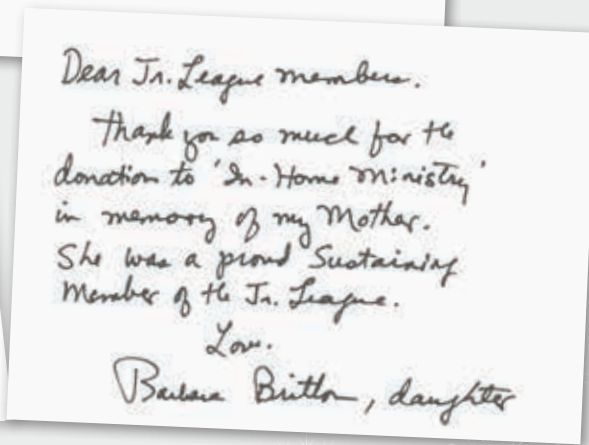 Dear Jr. League members.
Thank you so much for the
donation to 'In-Home Ministry'
in memory of my Mother.
She was a proud Sustaining
Member of the Jr. League.
Love.
Barbara Britton, daughter